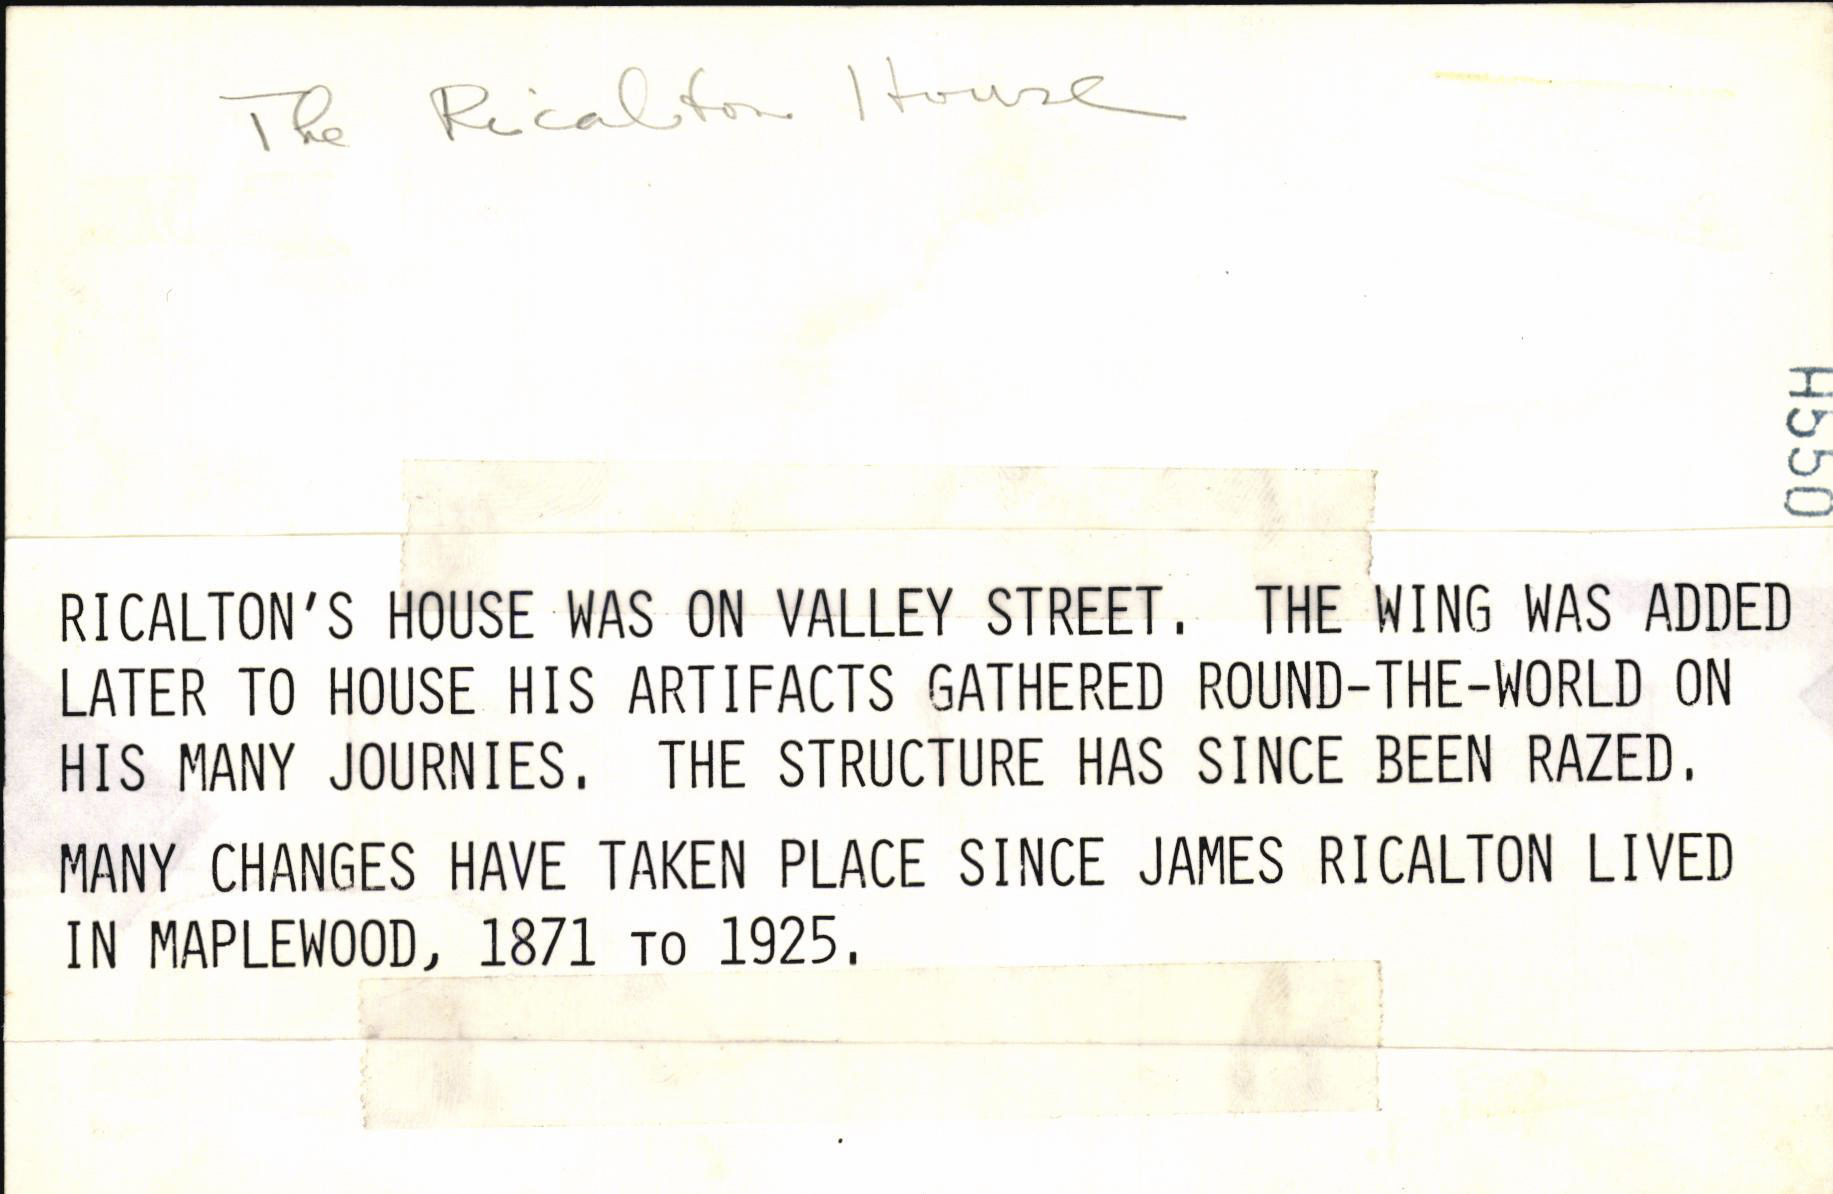 The Ricalton House
H550
RICALTON'S HOUSE WAS ON VALLEY STREET.  THE WING WAS ADDED
LATER TO HOUSE HIS ARTIFACTS GATHERED ROUND-THE-WORLD ON
HIS MANY JOURNIES.  THE STRUCTURE HAS SINCE BEEN RAZED.
MANY CHANGES HAVE TAKEN PLACE SINCE JAMES RICALTON LIVED
IN MAPLEWOOD, 1871 TO 1925.